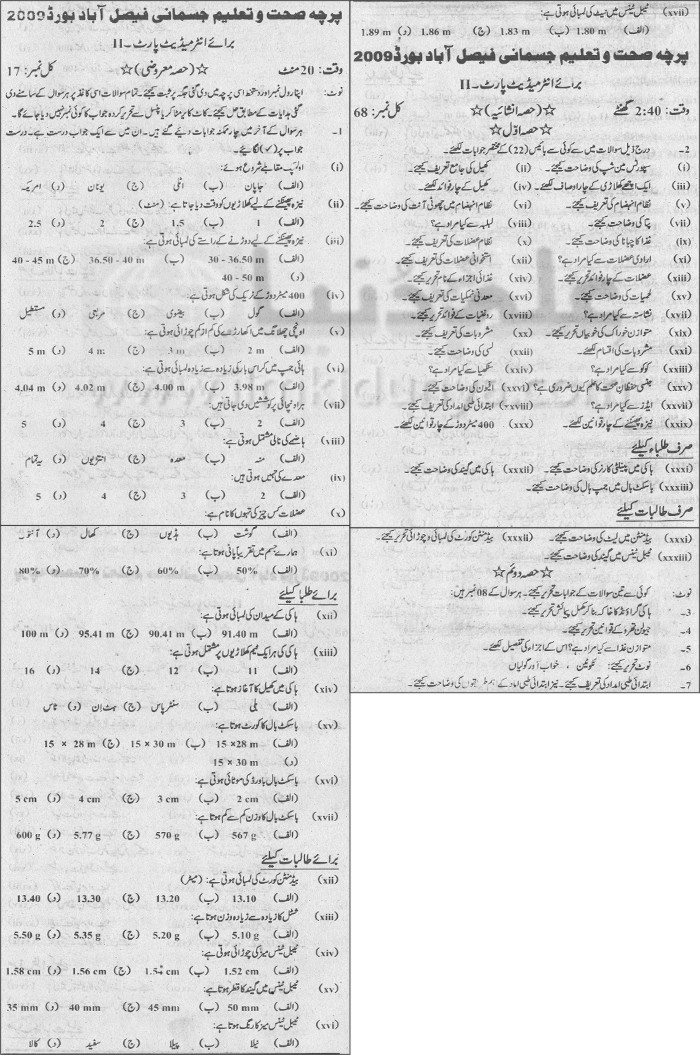 پرچہ صحت و تعلیم جسمانی فیصل آباد بورڈ 2009
برائے انٹرمیڈیٹ پارٹ۔II
وقت: 20 منٹ ☆(حصہ معروضی)☆ کل نمبر: 17
نوٹ: اپنا رول نمبر اور دستخط اسی پرچہ میں دی گئی جگہ پر ثبت کیجئے۔ تمام سوالات اسی کاغذ پر ہر سوال کے سامنے دی
گئی ہدایات کے مطابق حل کیجئے۔ کاٹ کر یا مٹا کر یا پنسل سے تحریر کردہ جواب کا کوئی نمبر نہیں دیا جائے گا۔
1۔ ہر سوال کے آخر میں چار ممکنہ جوابات دیے گئے ہیں۔ ان میں سے ایک جواب درست ہے۔ درست
جواب پر (✓) لگائیے۔
(i) اولمپک مقابلے شروع ہوئے:
(الف) جاپان (ب) اٹلی (ج) یونان (د) امریکہ
(ii) نیزہ پھینکنے کے لیے کھلاڑیوں کو وقت دیا جاتا ہے: (منٹ)
(الف) 1 (ب) 1.5 (ج) 2 (د) 2.5
(iii) نیزہ پھینکنے کے لیے دوڑنے کے راستے کی لمبائی ہوتی ہے:
(الف) 30 - 36.50 m (ب) 36.50 - 40 m (ج) 40 - 45 m
(د) 40 - 50 m
(iv) 400 میٹر دوڑ کے ٹریک کی شکل ہوتی ہے:
(الف) گول (ب) بیضوی (ج) مربعی (د) مستطیل
(v) اونچی چھلانگ میں اکھاڑے کی کم از کم چوڑائی ہوتی ہے:
(الف) 2 m (ب) 3 m (ج) 4 m (د) 5 m
(vi) ہائی جمپ میں کراس بار کی زیادہ سے زیادہ لمبائی ہوتی ہے:
(الف) 3.98 m (ب) 4.00 m (ج) 4.02 m (د) 4.04 m
(vii) ہر اونچائی پر کوششیں دی جاتی ہیں:
(الف) 2 (ب) 3 (ج) 4 (د) 5
(viii) ہاضمے کی نالی مشتمل ہوتی ہے:
(الف) منہ (ب) معدہ (ج) انتڑیوں (د) یہ تمام
(ix) معدے کی تہیں ہوتی ہیں:
(الف) 2 (ب) 3 (ج) 4 (د) 5
(x) عضلات کس چیز کی تہوں کا نام ہے:
(الف) گوشت (ب) ہڈیوں (ج) کھال (د) آنتوں
(xi) ہمارے جسم میں تقریباً پانی ہوتا ہے:
(الف) 50% (ب) 60% (ج) 70% (د) 80%
برائے طلبا کیلئے
(xii) ہاکی کے میدان کی لمبائی ہوتی ہے:
(الف) 91.40 m (ب) 90.41 m (ج) 95.41 m (د) 100 m
(xiii) ہاکی کی ہر ایک ٹیم کھلاڑیوں پر مشتمل ہوتی ہے:
(الف) 11 (ب) 12 (ج) 14 (د) 16
(xiv) ہاکی میں کھیل کا آغاز ہوتا ہے:
(الف) بلی (ب) سنٹر پاس (ج) ہٹ ان (د) ٹاس
(xv) باسکٹ بال کا کورٹ ہوتا ہے:
(الف) 15 ×28 m (ب) 15 × 30 m (ج) 15 × 28 m
(د) 15 × 30 m
(xvi) باسکٹ بال بورڈ کی موٹائی ہوتی ہے:
(الف) 2 cm (ب) 3 cm (ج) 4 cm (د) 5 cm
(xvii) باسکٹ بال کا وزن کم سے کم ہوتا ہے:
(الف) 567 g (ب) 570 g (ج) 5.77 g (د) 600 g
برائے طالبات کیلئے
(xii) بیڈمنٹن کورٹ کی لمبائی ہوتی ہے: (میٹر)
(الف) 13.10 (ب) 13.20 (ج) 13.30 (د) 13.40
(xiii) شٹل کا زیادہ سے زیادہ وزن ہوتا ہے:
(الف) 5.10 g (ب) 5.20 g (ج) 5.35 g (د) 5.50 g
(xiv) ٹیبل ٹینس میز کی چوڑائی ہوتی ہے:
(الف) 1.52 cm (ب) 1.54 cm (ج) 1.56 cm (د) 1.58 cm
(xv) ٹیبل ٹینس میں گیند کا قطر ہوتا ہے:
(الف) 50 mm (ب) 45 mm (ج) 40 mm (د) 35 mm
(xvi) ٹیبل ٹینس میز کا رنگ ہوتا ہے:
(الف) نیلا (ب) پیلا (ج) سفید (د) کالا
(xvii) ٹیبل ٹینس میں نیٹ کی لمبائی ہوتی ہے:
(الف) 1.80 m (ب) 1.83 m (ج) 1.86 m (د) 1.89 m
پرچہ صحت و تعلیم جسمانی فیصل آباد بورڈ 2009
برائے انٹرمیڈیٹ پارٹ۔II
وقت: 2:40 گھنٹے ☆(حصہ انشائیہ)☆ کل نمبر: 68
☆حصہ اوّل☆
2۔ درج ذیل سوالات میں سے کوئی سے بائیس (22) کے مختصر جوابات لکھئے۔
(i) سپورٹس مین شپ کی وضاحت کیجئے۔ (ii) کھیل کی جامع تعریف کیجئے۔
(iii) ایک اچھے کھلاڑی کے چار اوصاف لکھئے۔ (iv) کھیل کے چار فوائد لکھئے۔
(v) نظام انہضام کی تعریف کیجئے۔ (vi) نظام انہضام میں چھوٹی آنت کی وضاحت کیجئے۔
(vii) پِتا کی وضاحت کیجئے۔ (viii) لبلبہ سے کیا مراد ہے؟
(ix) غذا کا چبانا کی وضاحت کیجئے۔ (x) نظام عضلات کی تعریف کیجئے۔
(xi) ارادی عضلات سے کیا مراد ہے؟ (xii) استخوانی عضلات کی تعریف کیجئے۔
(xiii) عضلات کے چار فوائد تحریر کیجئے۔ (xiv) غذائی اجزاء کے نام تحریر کیجئے۔
(xv) لحمیات کی وضاحت کیجئے۔ (xvi) معدنی نمکیات کی تعریف کیجئے۔
(xvii) نشاستہ سے کیا مراد ہے؟ (xviii) روغنیات کے فوائد تحریر کیجئے۔
(xix) متوازن خوراک کی خوبیاں تحریر کیجئے۔ (xx) مشروبات کی تعریف کیجئے۔
(xxi) مشروبات کی اقسام لکھئے۔ (xxii) لسی کی وضاحت کیجئے۔
(xxiii) کوکو سے کیا مراد ہے؟ (xxiv) سنکھیا سے کیا مراد ہے؟
(xxv) جنسی حفظانِ صحت کا علم کیوں ضروری ہے؟ (xxvi) افیون کی وضاحت کیجئے۔
(xxvii) ایڈز سے کیا مراد ہے؟ (xxviii) ابتدائی طبی امداد کی تعریف کیجئے۔
(xxix) نیزہ پھینکنے کے چار قوانین لکھئے۔ (xxx) 400 میٹر دوڑ کے چار قوانین لکھئے۔
صرف طلباء کیلئے
(xxxi) ہاکی میں پینلٹی کارنر کی وضاحت کیجئے۔ (xxxii) ہاکی میں گیند کی وضاحت کیجئے۔
(xxxiii) باسکٹ بال میں جمپ بال کی وضاحت کیجئے۔
صرف طالبات کیلئے
(xxxi) بیڈمنٹن میں لیٹ کی وضاحت کیجئے۔ (xxxii) بیڈمنٹن کورٹ کی لمبائی و چوڑائی تحریر کیجئے۔
(xxxiii) ٹیبل ٹینس میں گیند کی وضاحت کیجئے۔
☆حصہ دوئم☆
نوٹ: کوئی سے تین سوالات کے جوابات تحریر کیجئے۔ ہر سوال کے 08 نمبر ہیں۔
3۔ ہاکی گراؤنڈ کا خاکہ بنا کر مکمل پیمائش تحریر کیجئے۔
4۔ جیولن تھرو کے قوانین تحریر کیجئے۔
5۔ متوازن غذا سے کیا مراد ہے؟ اس کے اجزاء کی تفصیل لکھئے۔
6۔ نوٹ تحریر کیجئے: نکوٹین ، خواب آور گولیاں
7۔ ابتدائی طبی امداد کی تعریف کیجئے۔ نیز ابتدائی طبی امداد کے اہم طریقوں کی وضاحت کیجئے۔